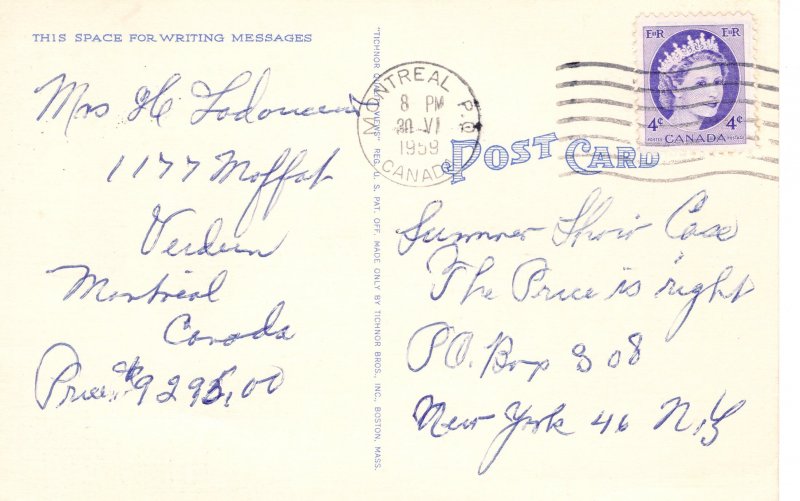 THIS SPACE FOR WRITING MESSAGES
Mrs H.
1177 Moffat
Verdun
Montréal
Canada
Price $9295,00
"TICHNOR QUALITY VIEWS" REG. U. S. PAT. OFF. MADE ONLY BY TICHNOR BROS. INC., BOSTON, MASS.
MONTREAL P.Q.
8 PM
30 VI
1959
CANADA
E II R E II R
4¢ 4¢
POSTES CANADA POSTAGE
POST CARD
Summer Show Case
The Price is right
P.O. Box 308
New York 46 N.Y